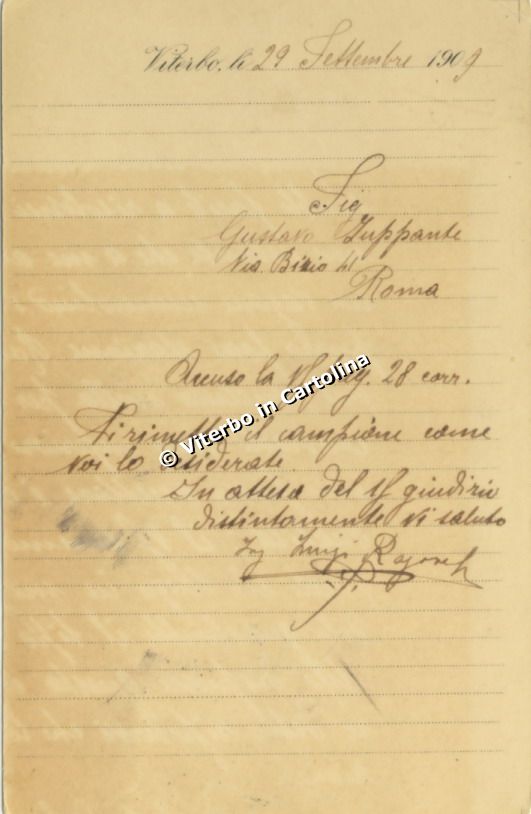 Viterbo, li 29 Settembre 1909
Sig
Gustavo Zuppante
Via Bixio 41
Roma
Accuso la 28 corr.
Vi rimetto il campione come
Voi lo desiderate
In attesa del Vs giudizio
distintamente Vi saluto
Ing Luigi
© Viterbo in Cartolina